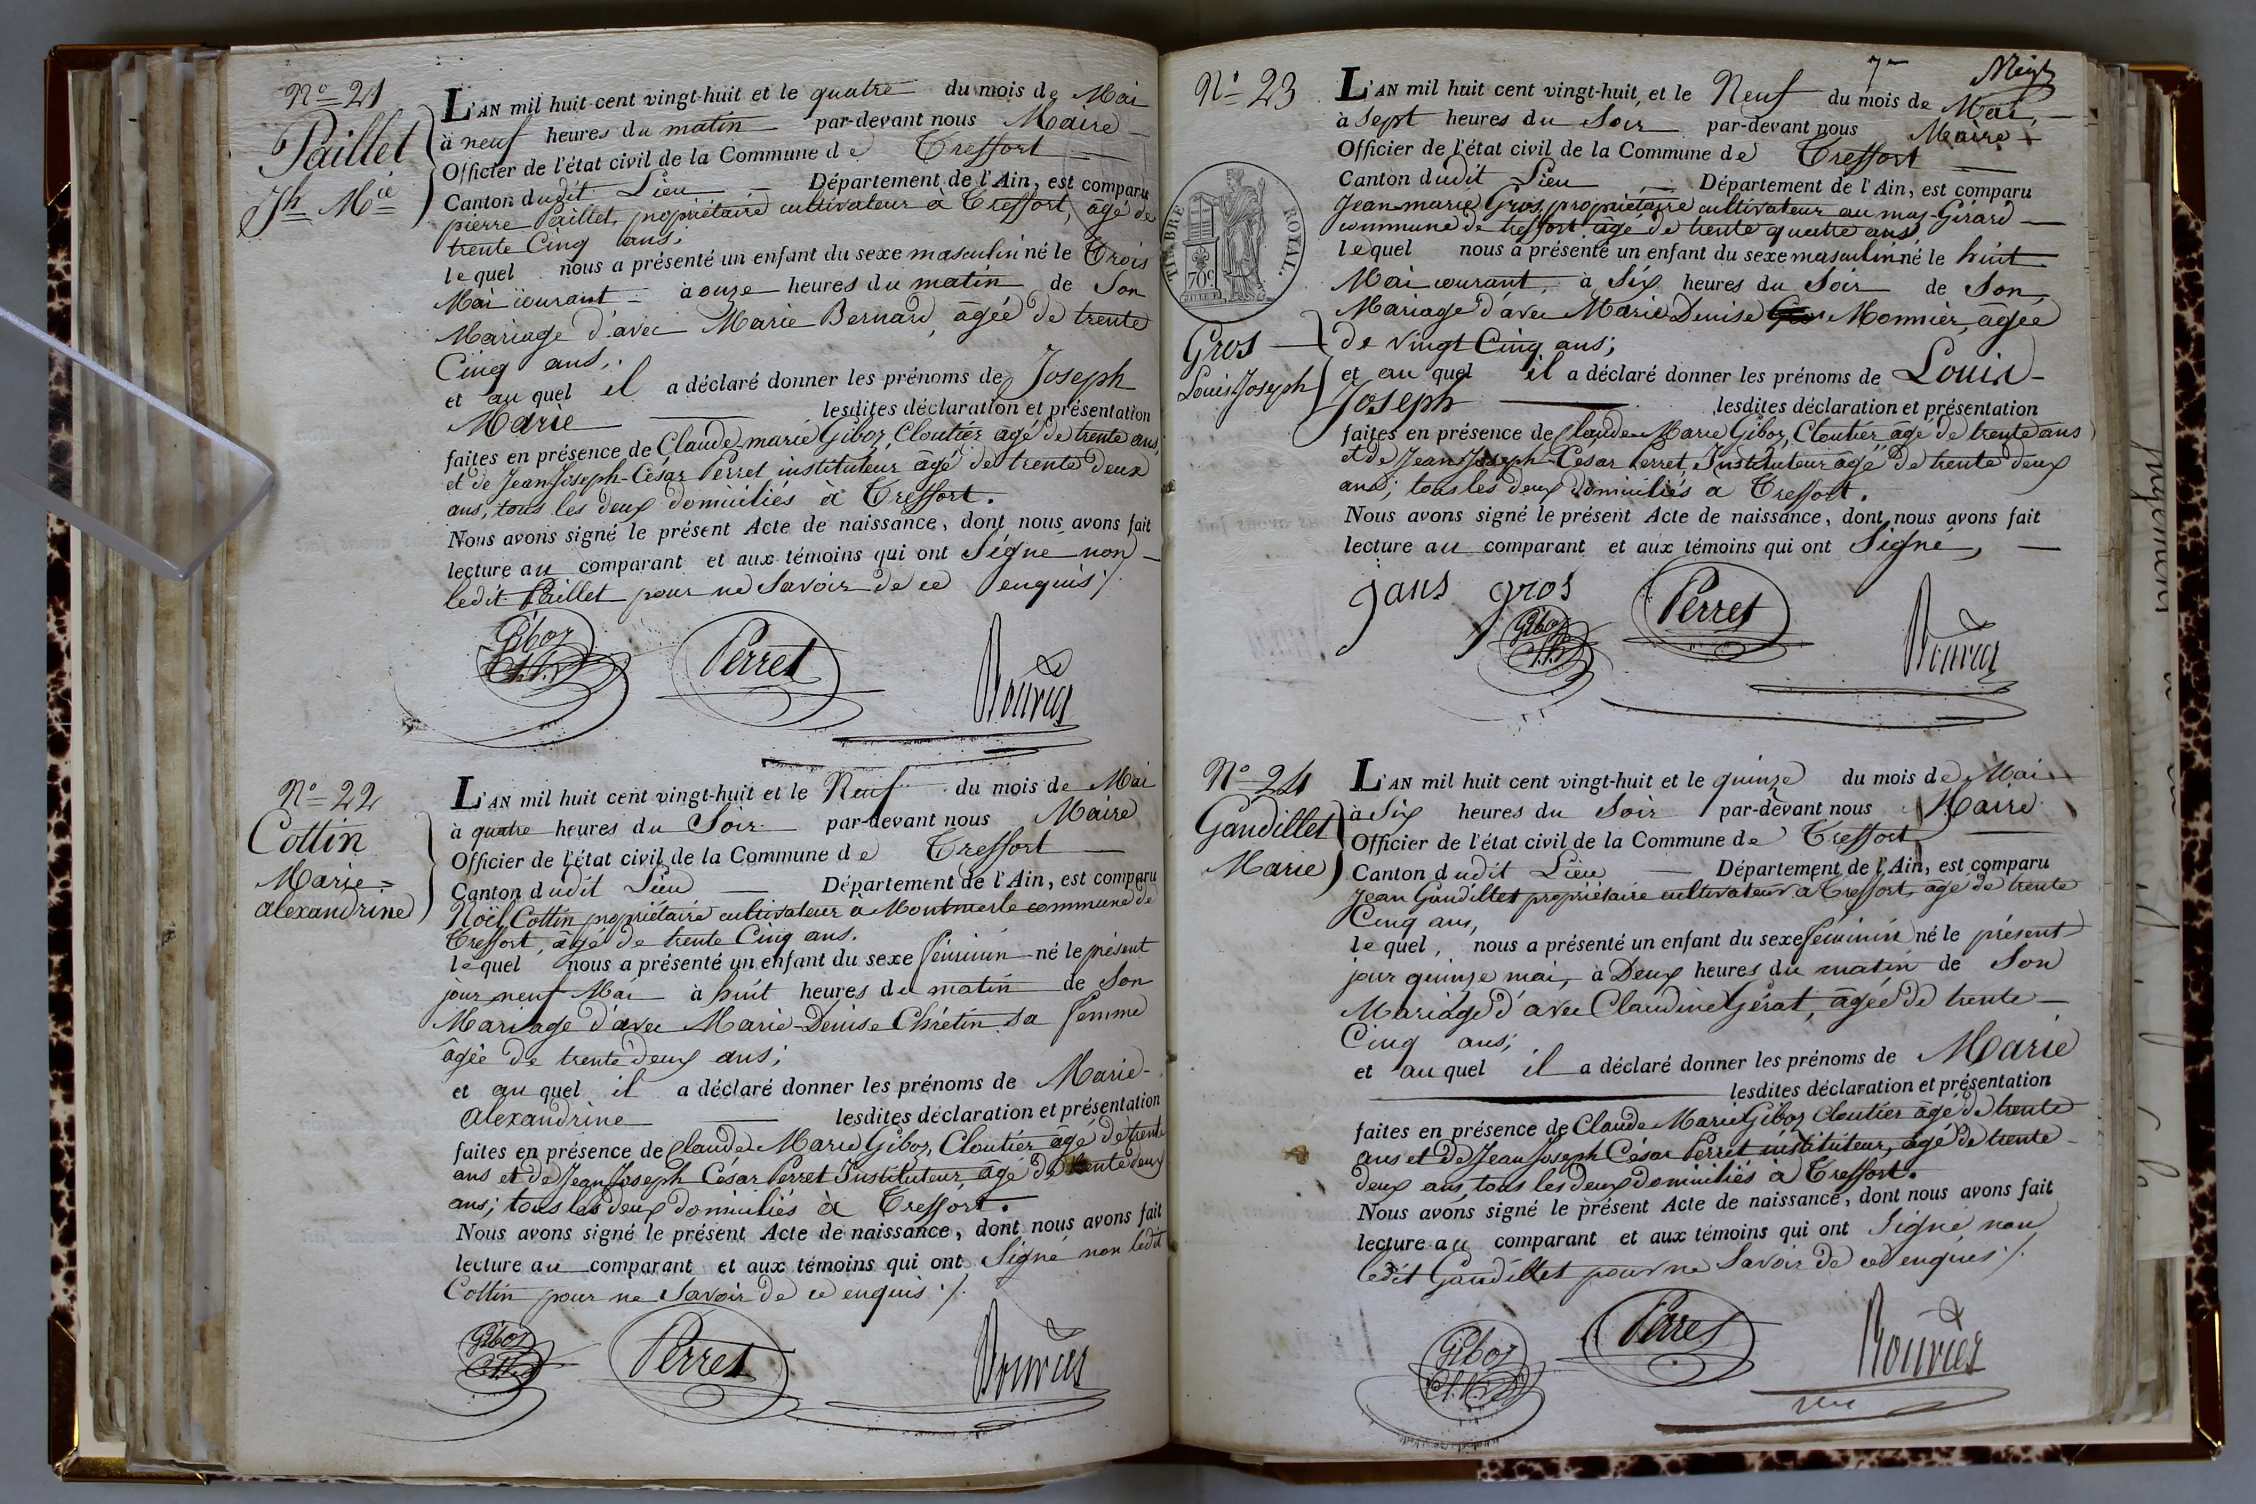 Nº 21
Paillet
Jh Mie
L'AN mil huit cent vingt-huit et le quatre du mois de Mai
à neuf heures du matin par-devant nous Maire
Officier de l'état civil de la Commune de Treffort
Canton dudit Lieu Département de l'Ain, est comparu
pierre Paillet, propriétaire cultivateur à Treffort, âgé de
trente Cinq ans;
lequel nous a présenté un enfant du sexe masculin né le Trois
Mai courant à onze heures du matin de Son
Mariage d'avec Marie Bernard, âgée de trente
Cinq ans;
et au quel il a déclaré donner les prénoms de Joseph
Marie lesdites déclaration et présentation
faites en présence de Claude marie Giboz, Cloutier âgé de trente ans,
et de Jean Joseph-César Perret instituteur âgé de trente deux
ans, tous les deux domiciliés à Treffort.
Nous avons signé le présent Acte de naissance, dont nous avons fait
lecture au comparant et aux témoins qui ont Signé non
ledit Paillet pour ne Savoir de ce enquis ./.
Giboz
Perret
Bouvier
Nº 22
Cottin
Marie
alexandrine
L'AN mil huit cent vingt-huit et le Neuf du mois de Mai
à quatre heures du Soir par-devant nous Maire
Officier de l'état civil de la Commune de Treffort
Canton dudit Lieu Département de l'Ain, est comparu
Noël Cottin propriétaire cultivateur à Montmerle commune de
Treffort, âgé de trente Cinq ans.
lequel nous a présenté un enfant du sexe féminin né le présent
jour neuf Mai à huit heures du matin de Son
Mariage d'avec Marie-Denise Chrétin sa femme
âgée de trente deux ans;
et au quel il a déclaré donner les prénoms de Marie-
alexandrine lesdites déclaration et présentation
faites en présence de Claude Marie Giboz, Cloutier âgé de trente
ans et de Jean Joseph César Perret Instituteur âgé de trente deux
ans; tous les deux domiciliés à Treffort.
Nous avons signé le présent Acte de naissance, dont nous avons fait
lecture au comparant et aux témoins qui ont Signé non ledit
Cottin pour ne Savoir de ce enquis ./.
Giboz
Perret
Bouvier
7
Nº 23
TIMBRE ROYAL
70c
Gros
Louis Joseph
L'AN mil huit cent vingt-huit, et le Neuf du mois de Mai,
à Sept heures du Soir par-devant nous Maire
Officier de l'état civil de la Commune de Treffort
Canton dudit Lieu Département de l'Ain, est comparu
Jean-marie Gros, propriétaire cultivateur au mas-Girard
commune de treffort âgé de trente quatre ans
lequel nous a présenté un enfant du sexe masculin né le huit
Mai courant, à Six heures du Soir de Son
Mariage d'avec Marie Denise Monnier, agée
de Vingt Cinq ans;
et au quel il a déclaré donner les prénoms de Louis-
Joseph lesdites déclaration et présentation
faites en présence de Claude Marie Giboz, Cloutier âgé de trente ans
et de Jean Joseph-César Perret, Instituteur âgé de trente deux
ans; tous les deux domiciliés à Treffort.
Nous avons signé le présent Acte de naissance, dont nous avons fait
lecture au comparant et aux témoins qui ont Signé,
gros
Giboz
Perret
Bouvier
Nº 24
Gaudillet
Marie
L'AN mil huit cent vingt-huit et le quinze du mois de Mai
à Six heures du Soir par-devant nous Maire
Officier de l'état civil de la Commune de Treffort
Canton dudit Lieu Département de l'Ain, est comparu
Jean Gaudillet propriétaire cultivateur à Treffort, âgé de trente
Cinq ans,
lequel, nous a présenté un enfant du sexe féminin né le présent
jour quinze mai, à Deux heures du matin de Son
Mariage d'avec Claudine Gérat, âgée de trente
Cinq ans;
et au quel il a déclaré donner les prénoms de Marie
lesdites déclaration et présentation
faites en présence de Claude Marie Giboz Cloutier âgé de trente
ans et de Jean Joseph César Perret instituteur, âgé de trente
deux ans, tous les deux domiciliés à Treffort.
Nous avons signé le présent Acte de naissance, dont nous avons fait
lecture au comparant et aux témoins qui ont Signé non
ledit Gaudillet pour ne Savoir de ce enquis ./.
Giboz
Perret
Bouvier